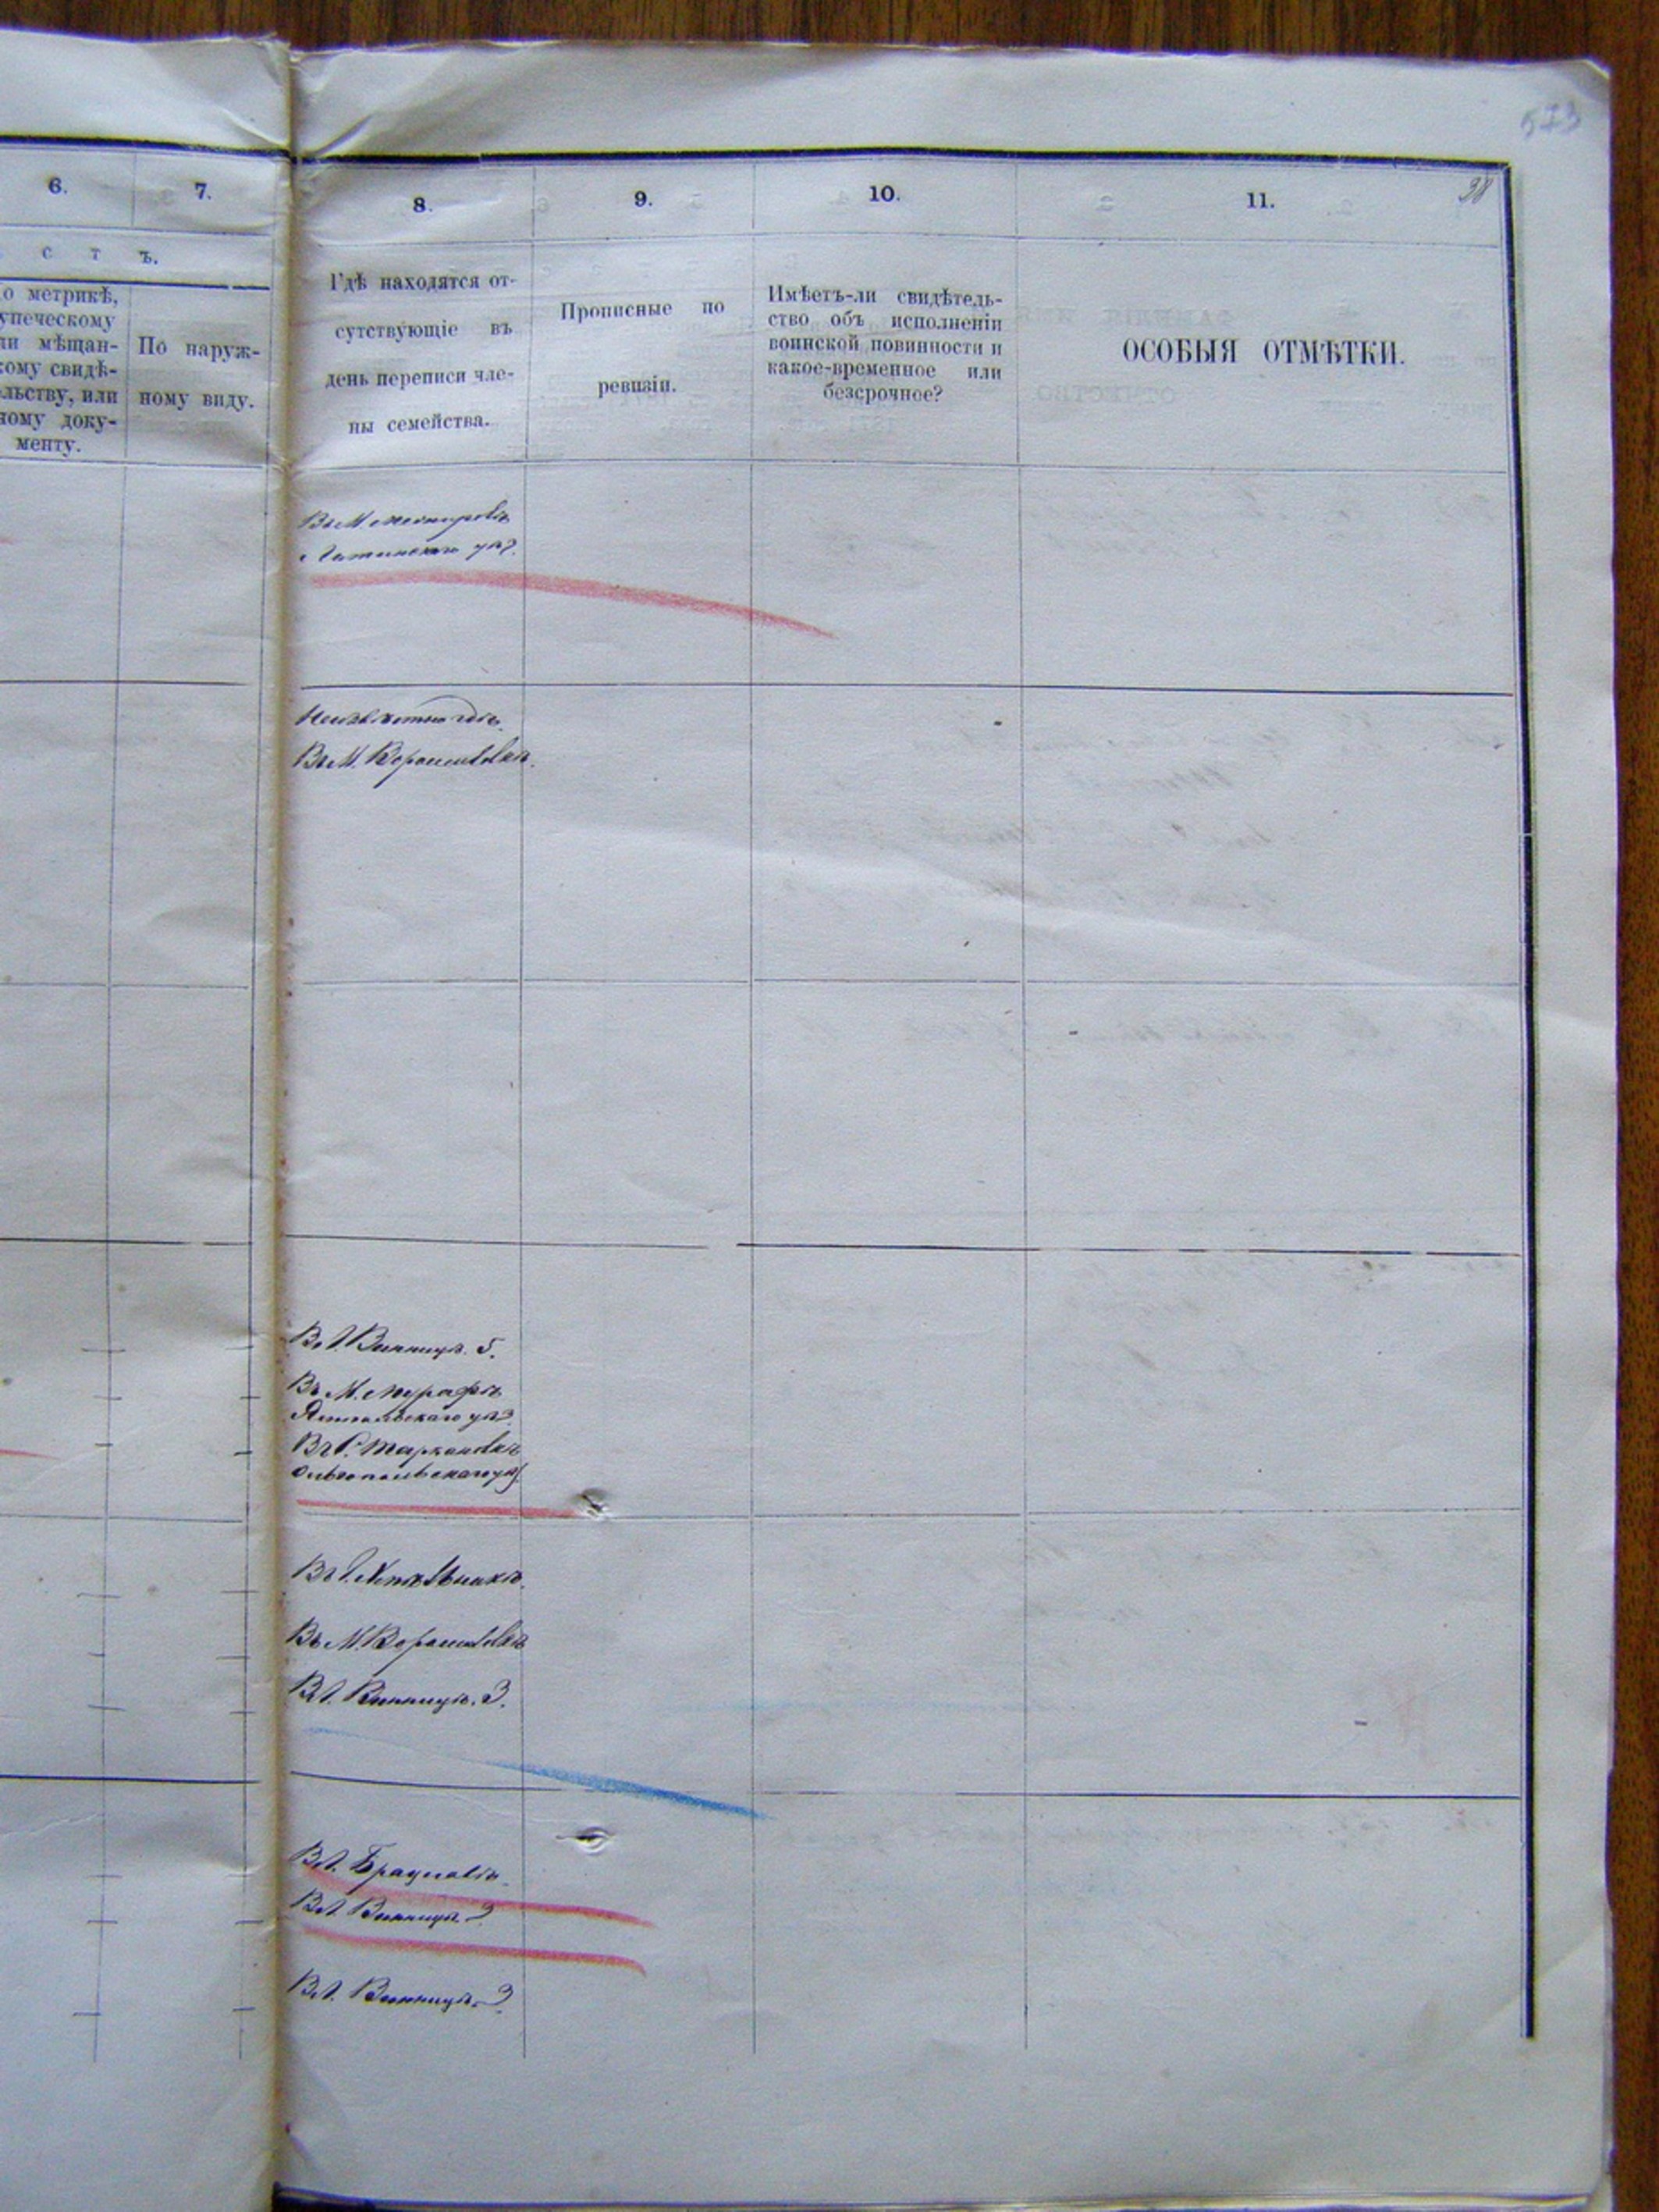 573
6.
7.
8.
9.
10.
11.
38
с т ъ.
о метрикѣ,
упеческому
ли мѣщан-
кому свидѣ-
льству, или
ному доку-
менту.
По наруж-
ному виду.
Гдѣ находятся от-
сутствующіе въ
день переписи чле-
ны семейства.
Прописные по
ревизіи.
Имѣетъ-ли свидѣтель-
ство объ исполненіи
воинской повинности и
какое-временное или
безсрочное?
ОСОБЫЯ ОТМѢТКИ.
Въ М.
Неизвѣстно гдѣ
Въ М. Ворошиловкѣ.
Въ Г. Винницѣ. 5.
Въ М. Мурафѣ
Ямпольскаго уѣз.
Въ С. Таржановкѣ
Въ Г. Хмѣльникѣ.
Въ М. Ворошиловкѣ
Въ Г. Винницѣ. 3.
Въ Г. Брацлавѣ.
Въ Г. Винницѣ. 3
Въ Г. Винницѣ. 3